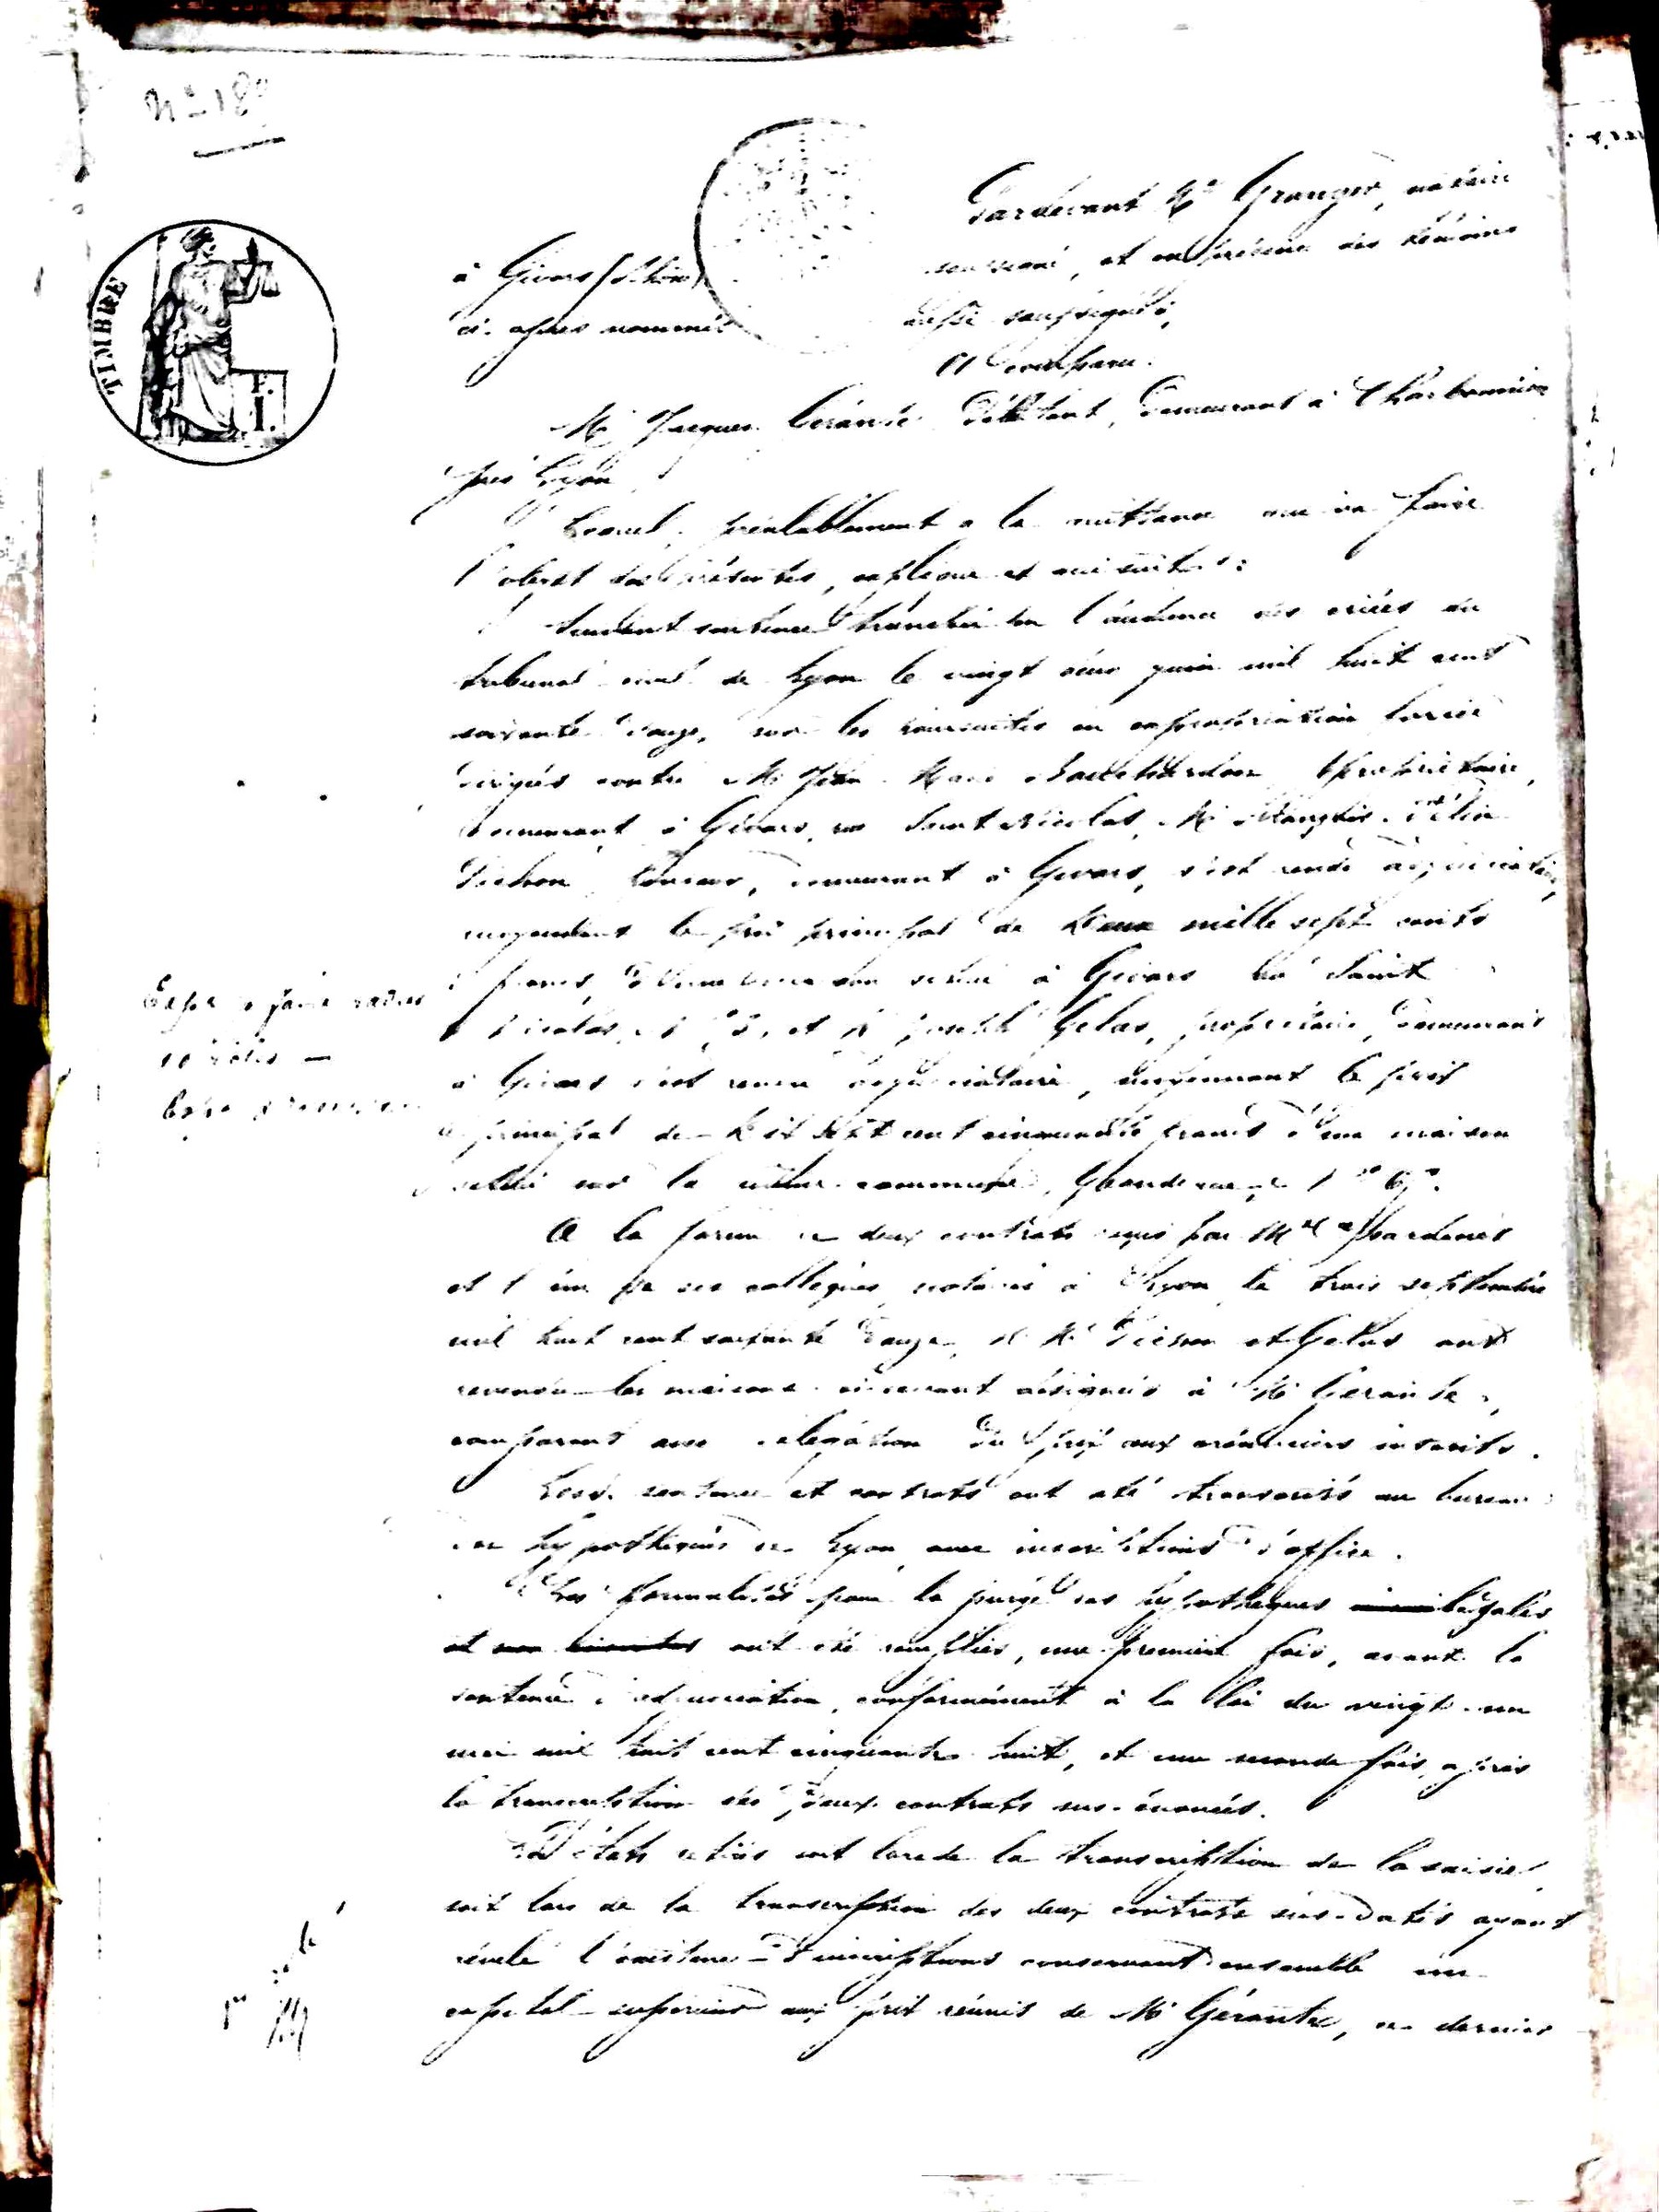 TIMBRE
Pardevant Me Granger, notaire
à Givors (Rhône) soussigné, et en présence des témoins
ci-après nommés aussi soussignés,
A Comparu.
M. Jacques Gérante Débitant, demeurant à Charbonnières
près Lyon
Lequel, préalablement à la quittance qui va faire
l'objet des présentes, explique ce qui suit :
Suivant sentence tranchée en l'audience des criées du
tribunal civil de Lyon le vingt deux juin mil huit cent
soixante douze, sur les poursuites en expropriation forcée
dirigées contre M. Jean Marie propriétaire,
demeurant à Givors, rue Saint Nicolas, M.
Pichon demeurant à Givors, s'est rendu adjudicataire,
moyennant le prix principal de deux mille sept cents
francs, d'une maison située à Givors rue Saint
Nicolas, et M. Joseph Gelas, propriétaire, demeurant
à Givors s'est rendu adjudicataire, moyennant le prix
principal de sept cent cinquante francs d'une maison
située sur la même commune, Grande rue, n° 67.
A la forme de deux contrats reçus par Me
et l'un de ses collègues notaires à Lyon le trois septembre
mil huit cent soixante douze, M.M. Pichon et Gelas ont
revendu les maisons ci-devant désignées à M. Gérante,
comparant avec délégation du prix aux créanciers inscrits.
Lesd. sentence et contrats ont été transcrits au bureau
des hypothèques de Lyon avec inscriptions d'office.
Les formalités pour la purge des hypothèques légales
ont été remplies, une première fois, avant la
sentence d'adjudication, conformément à la loi du vingt-un
mai mil huit cent cinquante huit, et une seconde fois, après
la transcription des deux contrats sus-énoncés.
D'états retirés soit lors de la transcription de la saisie,
soit lors de la transcription des deux contrats sus-datés ayant
révélé l'existence d'inscriptions conservant ensemble un
capital supérieur aux prix réunis de M. Gérante, ce dernier